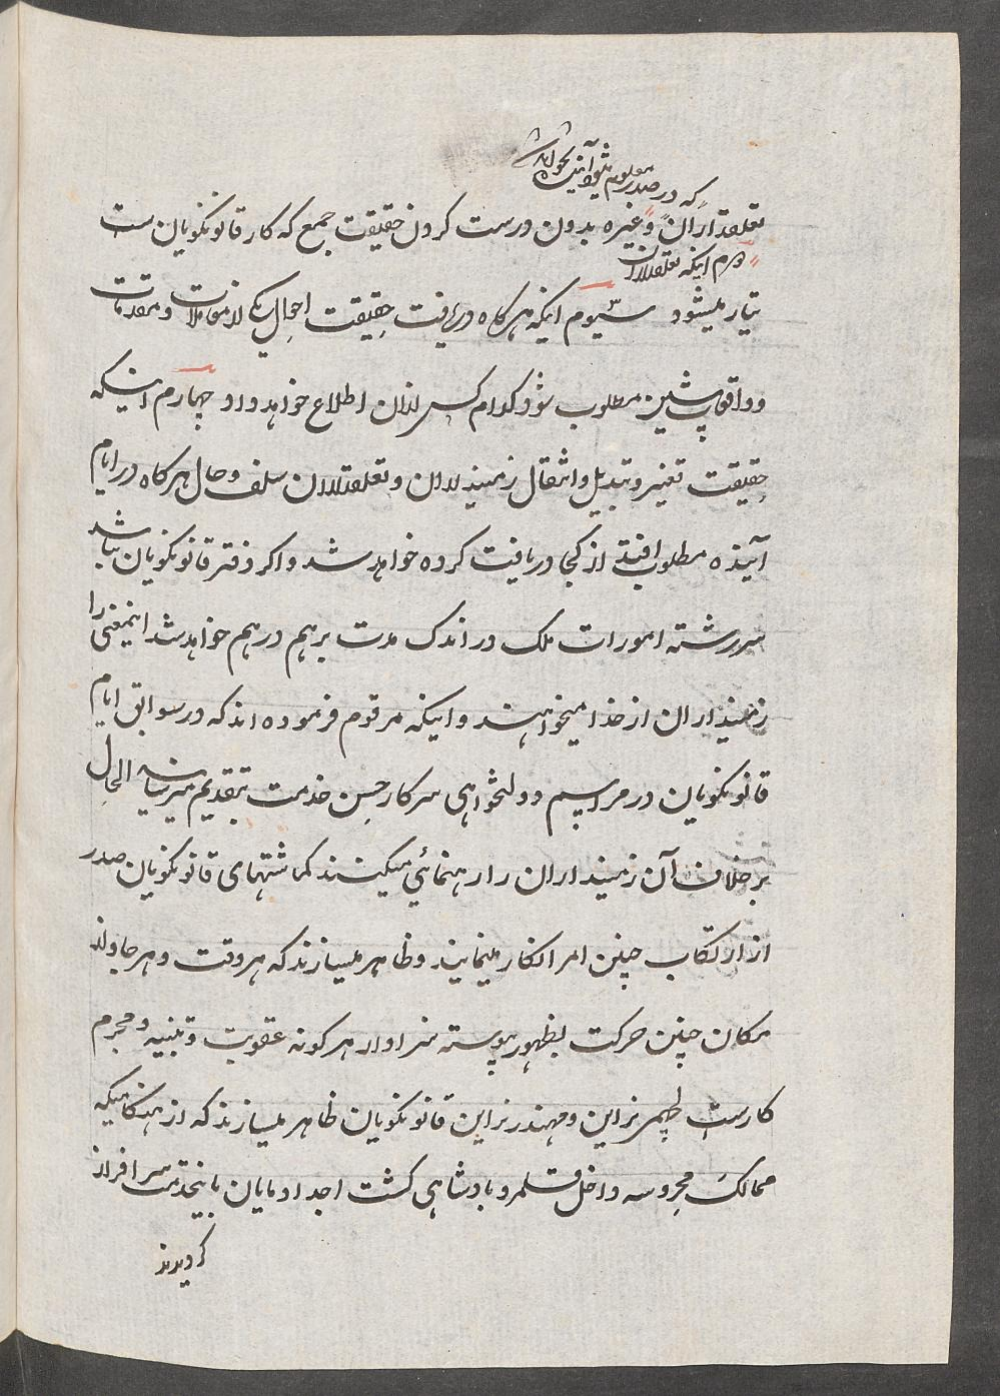 که در صدر معلوم شود آینده نخواهد
تعلقداران وغیره بدون درست کردن حقیقت جمع که کار قانونگویان ست
دوم اینکه تعلقداران
تیار میشود سیوم اینکه هرگاه دریافت حقیقت احوال یک از معاملات و مقدمات
و واقعات پیشین مطلوب شود کدام کس ازان اطلاع خواهد داد چهارم اینکه
حقیقت تغیر و تبدیل و انتقال زمینداران و تعلقداران سلف و حال هرگاه در ایام
آینده مطلوب افتد از کجا دریافت کرده خواهد شد و اکر دفتر قانونگویان نباشد
سررشته امورات ملک در اندک مدت برهم درهم خواهد شد اینمعنی را
زمینداران از خدا میخواهند و اینکه مرقوم فرموده اند که در سوابق ایام
قانونگویان در مراسم دولتخواهی سرکار حسن خدمت بتقدیم میرسانیدند الحال
برخلاف آن زمینداران را رهنمائی میکنند کماشتهای قانونگویان صدر
از ارتکاب چنین امر انکار مینمایند و ظاهر میسازند که هر وقت و هر جا و از
مکان چنین حرکت بظهور پیوسته سزاوار هر کونه عقوبت و تنبیه و مجرم
کارست لچهمی نراین و مهندر نراین قانونگویان ظاهر میسازند که از هنکامیکه
ممالک محروسه داخل قلمرو بادشاهی کشت اجداد مایان باینخدمت سرافراز
کردیدند